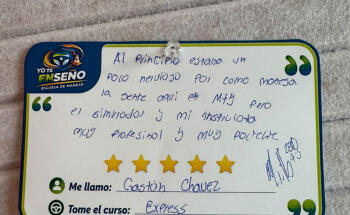 YO TE
ENSEÑO
ESCUELA DE MANEJO
Al Principio estaba un
poco nervioso Por como maneja
la gente aquí en Mty Pero
el simulador y mi instructora
muy profesional y muy paciente
Me llamo: Gastón Chavez
Tome el curso: Express